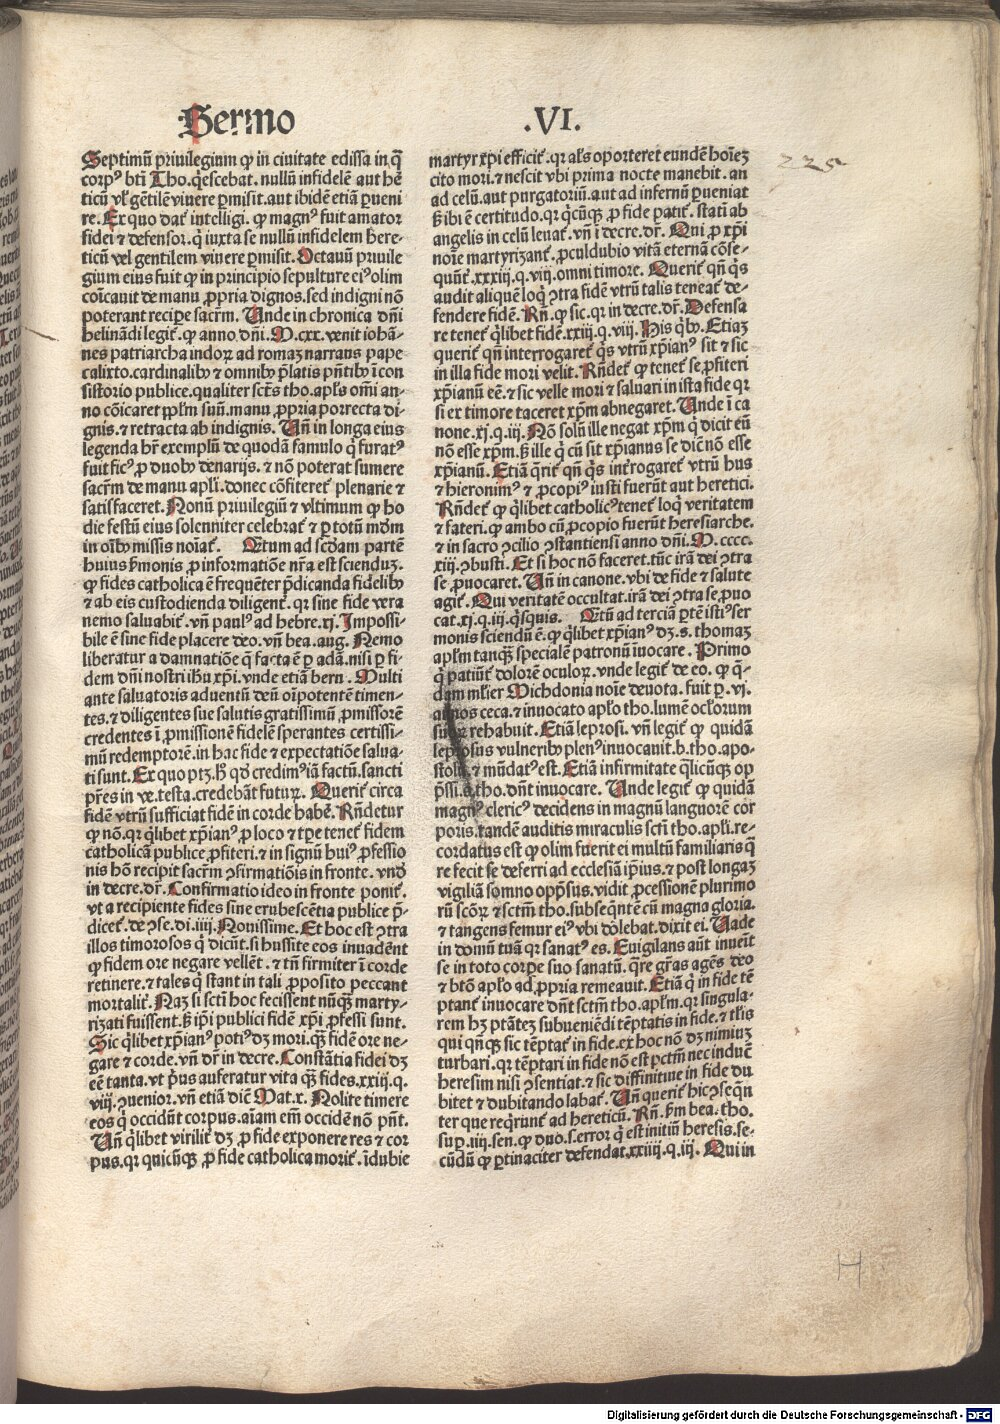 Sermo
.VI.
225
Septimū priuilegium ꝙ in ciuitate edissa in q̄
corpꝰ bti Tho. q̇escebat. nullū infidelē aut he
ticū vl' gētilē viuere ꝑmisit. aut ibidē etiā ꝑueni
re. Ex quo dat̄ intelligi. ꝙ magnꝰ fuit amator
fidei ⁊ defensor. q̇ iuxta se nullū infidelem here-
ticū vel gentilem viuere ꝑmisit. Octauū priuile
gium eius fuit ꝙ in principio sepulture eiꝰ olim
coīcauit de manu ꝓpria dignos. sed indigni nō
poterant recipe sacr̄m. Unde in chronica dn̄i
helināndi legit̄. ꝙ anno dn̄i. M.cxx. venit iohā-
nes patriarcha indoꝝ ad romaꝫ narrans pape
calixto. cardinalibꝰ ⁊ omnibꝰ p̄latis p̄ntibꝰ ī con
sistorio publice. qualiter sct̄s tho. apl̄s om̄i an-
no cōicaret ppl̄m suū. manu ꝓpria porrecta di-
gnis. ⁊ retracta ab indignis. Uñ in longa eius
legenda hr̄ exemplū de quodā famulo q̇ furatꝰ
fuit ficꝰ ꝓ duobꝰ denarijs. ⁊ nō poterat sumere
sacr̄m de manu apl̄i. donec cōfiteret̄ plenarie ⁊
satisfaceret. Nonū priuilegiū ⁊ vltimum ꝙ ho
die festū eius solenniter celebrat̄ ⁊ ꝑ totū mūdm
in oībꝰ missis noīat̄. Qtum ad scdam partē
huius smonis ꝓ informatiōe nr̄a est sciendūꝫ.
ꝙ fides catholica ē frequēter p̄dicanda fidelibꝰ
⁊ ab eis custodienda diligent̄. qꝛ sine fide vera
nemo saluabit̄. vn̄ paulꝰ ad hebre. xj. Impossi-
bile ē sine fide placere deo. vn̄ bea. aug. Nemo
liberatur a damnatiōe q̄ facta ē ꝑ adā. nisi ꝑ fi-
dem dn̄i nostri ihu xp̄i. vnde etiā bern. Multi
ante saluatoris aduentū deū oīpotentē timen-
tes. ⁊ diligentes sue salutis gratissimū ꝓmissorē
credentes ī ꝓmissionē fidelē sperantes certissi-
mū redemptorē. in hac fide ⁊ expectatiōe salua-
ti sunt. Ex quo ptꝫ. hͦ qd̄ credimꝰ iā factū. sancti
p̄res in ve. testa. credebāt futuꝝ. Querit̄ circa
fidē vtrū sufficiat fidē in corde habē. Rn̄detur
ꝙ nō. qꝛ q̇libet xp̄ianꝰ ꝓ loco ⁊ tpe tenet̄ fidem
catholicā publice ꝓfiteri. ⁊ in signū huiꝰ ꝓfessio
nis hō recipit sacr̄m ꝯfirmatiōis in fronte. vnd̄
in decre. dr̄. Confirmatio ideo in fronte ponit̄.
vt a recipiente fides sine erubescētia publice p̄-
dicet̄. de ꝯse. di. iiij. Nouissime. Et hoc est ꝯtra
illos timorosos q̇ dicūt. si hussite eos inuadēnt
ꝙ fidem ore negare vellēt. ⁊ tn̄ firmiter ī corde
retinere. ⁊ tales q̇ stant in tali ꝓposito peccant
mortalit̄. Naꝫ si scti hoc fecissent nūq̄ꝫ marty-
rizati fuissent. sꝫ ip̄i publici fidē xp̄i ꝓfessi sunt.
Sic q̇libet xp̄ianꝰ potiꝰ dꝫ mori. q̄ꝫ fidē ore ne-
gare ⁊ corde. vn̄ dr̄ in decre. Constātia fidei dꝫ
eē tanta. vt p̄us auferatur vita q̄ꝫ fides. xxiij. q.
viij. ꝯuenior. vn̄ etiā diē Mat. x. Nolite timere
eos q̇ occidūt corpus. aīam em̄ occidē nō pn̄t.
Un̄ q̇libet virilit̄ dꝫ ꝓ fide exponere res ⁊ cor
pus. qꝛ quicūqꝫ ꝓ fide catholica morit̄. īdubie
martyr xp̄i efficit̄. qꝛ al's oporteret eundē hoīeꝫ
cito mori. ⁊ nescit vbi prima nocte manebit. an
ad celū. aut purgatoriū. aut ad infernū ꝑueniat
sꝫ ibi ē certitudo. qꝛ q̇cūqꝫ ꝓ fide patit̄. statī ab
angelis in celū leuat̄. vn̄ ī decre. dr̄. Qui ꝓ xp̄i
noīe martyrizant̄. ꝓculdubio vitā eternā cōse-
quūt̄. xxxiij. q. viij. omni timore. Querit̄ qn̄ q̇s
audit aliquē loq̇ ꝯtra fidē vtrū talis teneat̄ de-
fendere fidē. Rn̄. ꝙ sic. qꝛ in decre. dr̄. Defensa
re tenet̄ q̇libet fidē. xxiij. q. viij. His q̇bꝰ. Etiaꝫ
querit̄ qn̄ interrogaret̄ q̇s vtrū xp̄ianꝰ sit ⁊ sic
in illa fide mori velit. Rn̄det̄ ꝙ tenet̄ se ꝓfiteri
xp̄ianū eē. ⁊ sic velle mori ⁊ saluari in ista fide qꝛ
si ex timore taceret xp̄m abnegaret. Unde ī ca
none. xj. q. iij. Nō solū ille negat xp̄m q̇ dicit eū
nō esse xp̄m. sꝫ ille q̇ cū sit xp̄ianus se dic̄ nō esse
xp̄ianū. Etiā q̄rit̄ qn̄ q̇s int̄rogaret̄ vtrū hus
⁊ hieronimꝰ ⁊ ꝓcopiꝰ iusti fuerūt aut heretici.
Rn̄det̄ ꝙ q̇libet catholicꝰ tenet̄ loq̇ veritatem
⁊ fateri. ꝙ ambo cū ꝓcopio fuerūt heresiarche.
⁊ in sacro ꝯcilio ꝯstantiensi anno dn̄i. M.cccc.
xiij. ꝯbusti. Et si hoc nō faceret. tūc irā dei ꝯtra
se ꝓuocaret. Un̄ in canone. vbi de fide ⁊ salute
agit̄. Qui veritatē occultat. irā dei ꝯtra se ꝓuo
cat. xj. q. iij. q̇squis. Qtū ad terciā ptē isti⁹ ser
monis sciendū ē. ꝙ q̇libet xp̄ianꝰ dꝫ. s. thomaꝫ
apl̄m tanq̄ꝫ specialē patronū īuocare. Primo
q̇ patiūt̄ dolorē oculoꝝ. vnde legit̄ de eo. ꝙ q̄-
dam ml̄ier Michdonia noīe deuota. fuit ꝑ. vj.
annos ceca. ⁊ inuocato apl̄o tho. lumē ocl̄orum
suoꝝ rehabuit. Etiā leprosi. vn̄ legit̄ ꝙ quidā
leprosus vulneribꝰ plenꝰ inuocauit. b. tho. apo-
stolū. ⁊ mūdatꝰ est. Etiā infirmitate q̇licūqꝫ op
p̄ssi. s. tho. dn̄t inuocare. Unde legit̄ ꝙ quidā
magnꝰ clericꝰ decidens in magnū languorē cor
poris. tandē auditis miraculis scti tho. apl̄i. re-
cordatus est ꝙ olim fuerit ei multū familiaris q̄
re fecit se deferri ad ecclesiā ip̄ius. ⁊ post longaꝫ
vigiliā somno opp̄sus. vidit ꝓcessionē plurimo
rū scōꝝ ⁊ sctm̄ tho. subseq̄ntē cū magna gloria.
⁊ tangens femur eiꝰ vbi dolebat. dixit ei. Uade
in domū tuā qꝛ sanatꝰ es. Euigilans aūt inueīt
se in toto corpe suo sanatū. q̄re gr̄as agēs deo
⁊ bt̄o apl̄o ad ꝓpria remeauit. Etiā q̇ in fide tē
ptant̄ inuocare dn̄t sctm̄ tho. apl̄m. qꝛ singula-
rem hꝫ ptātē subueniēdi tēptatis in fide. ⁊ tl̄is
qui qn̄qꝫ sic tēptat̄ in fide. ex hoc nō dꝫ nimiuꝫ
turbari. qꝛ tēptari in fide nō est pctm̄ nec inducē
heresim nisi ꝯsentiat. ⁊ sic diffinitiue in fide du
bitet ⁊ dubitando labat̄. Un̄ querit̄ hic ꝯseq̄n
ter que reqrunt̄ ad hereticū. Rn̄. sm̄ bea. tho.
sup. iiij. sen. ꝙ duo. s. error q̇ est initiū heresis. se-
cūdū ꝙ ꝑtinaciter defendat. xxiiij. q. iij. Qui in
H
Digitalisierung gefördert durch die Deutsche Forschungsgemeinschaft - DFG